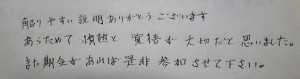 解りやすい説明ありがとうございます
あらためて情熱と覚悟が大切だと思いました。
また機会があれば是非参加させて下さい。